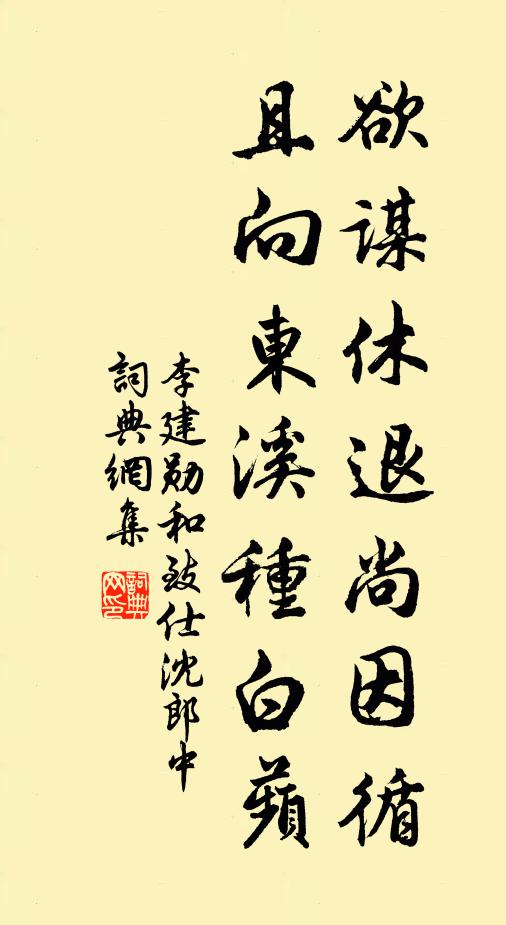 欲谋休退尚因循
且向東溪種白蘋
李建勋和致仕沈郎中
詞典網集
詞典网印